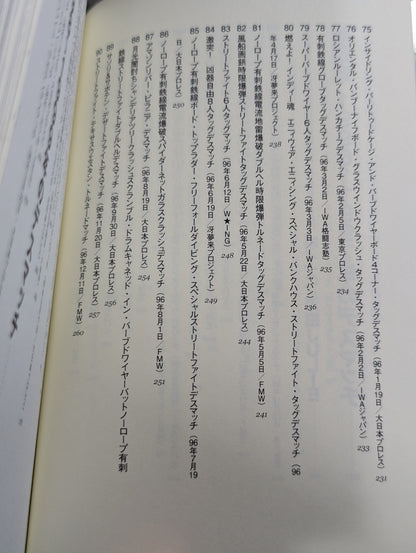 75 インサイドリング・バリトゥードケージ・アンド・バーブドワイヤーボード4コーナー・タッグデスマッチ（96年1月19日／大日本プロレス） 231
76 オリエンタル・バンブーナイフボード・グラスウインドウクラッシュ・タッグデスマッチ（96年2月2日／IWAジャパン） 233
77 ロシアンルーレット・ハンカチーフデスマッチ（96年2月5日／東京プロレス） 234
78 有刺鉄線グローブタッグデスマッチ（96年3月2日／IWA格闘志塾） 235
79 スーパーバーブドワイヤー6人タッグデスマッチ（96年3月3日／IWAジャパン） 236
80 燃えよ！インディー魂 エニウェア・エニィシング・スペシャル・バンクハウス・ストリートファイト・タッグデスマッチ（96
年4月17日／冴夢来プロジェクト） 238
81 ノーロープ有刺鉄線電流地雷爆破ダブルヘル時限爆弾トルネードタッグデスマッチ（96年5月5日／FMW） 241
82 風船画鋲時限爆弾ストリートファイトタッグデスマッチ（96年5月22日／大日本プロレス） 244
83 ストリートファイト6人タッグマッチ（96年6月12日／W★ING） 248
84 激突！ 凶器自由8人タッグデスマッチ（96年6月19日／冴夢来プロジェクト） 249
85 ノーロープ有刺鉄線ボード・トップラダー・フリーフォールダイビング・スペシャルストリートファイトデスマッチ（96年7月19
日／大日本プロレス） 250
86 ノーロープ有刺鉄線電流爆破スパイダーネットガラスクラッシュデスマッチ（96年8月1日／FMW） 251
87 アマゾンリバー・ピラニア・デスマッチ（96年8月19日／大日本プロレス） 254
88 月光闇討ちシャンデリアクリークラッシュスクランブル・ドラムキャネッド・イン・バーブドワイヤーバットノーロープ有刺
鉄線ストリートファイトダブルヘルデスマッチ（96年9月30日／大日本プロレス） 256
89 サソリ&サボテン・デザートファイトデスマッチ（96年11月20日／大日本プロレス） 257
90 ストリートファイト・テキサスウエスタン・トルネードマッチ（96年12月11日／FMW） 260